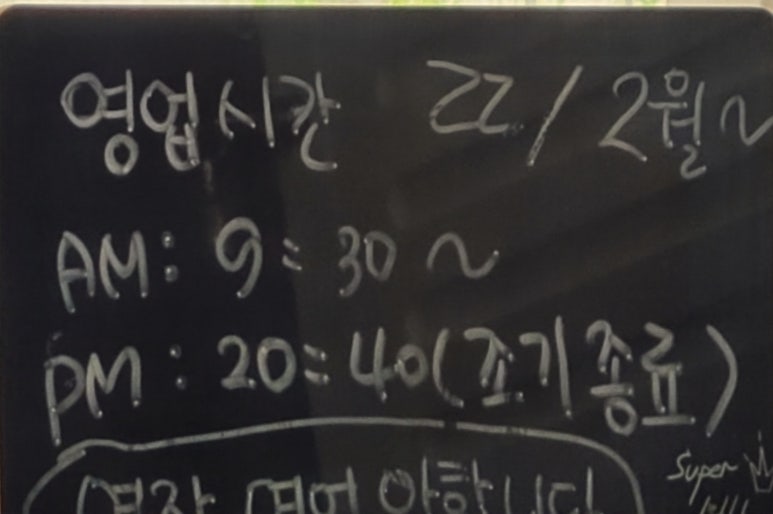 영업시간 22/2월~
AM: 9:30 ~
PM: 20:40(조기종료)
Super